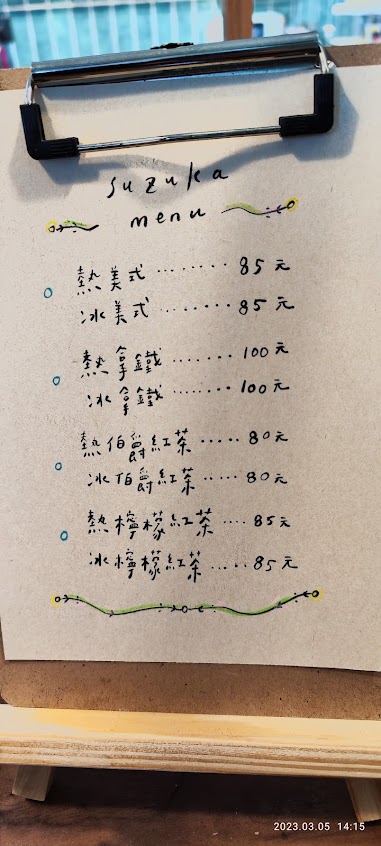 suzuka
menu
熱美式 ········ 85元
冰美式 ········ 85元
熱拿鐵 ······· 100元
冰拿鐵 ······· 100元
熱伯爵紅茶 ····· 80元
冰伯爵紅茶 ····· 80元
熱檸檬紅茶 ···· 85元
冰檸檬紅茶 ····· 85元
2023.03.05 14:15